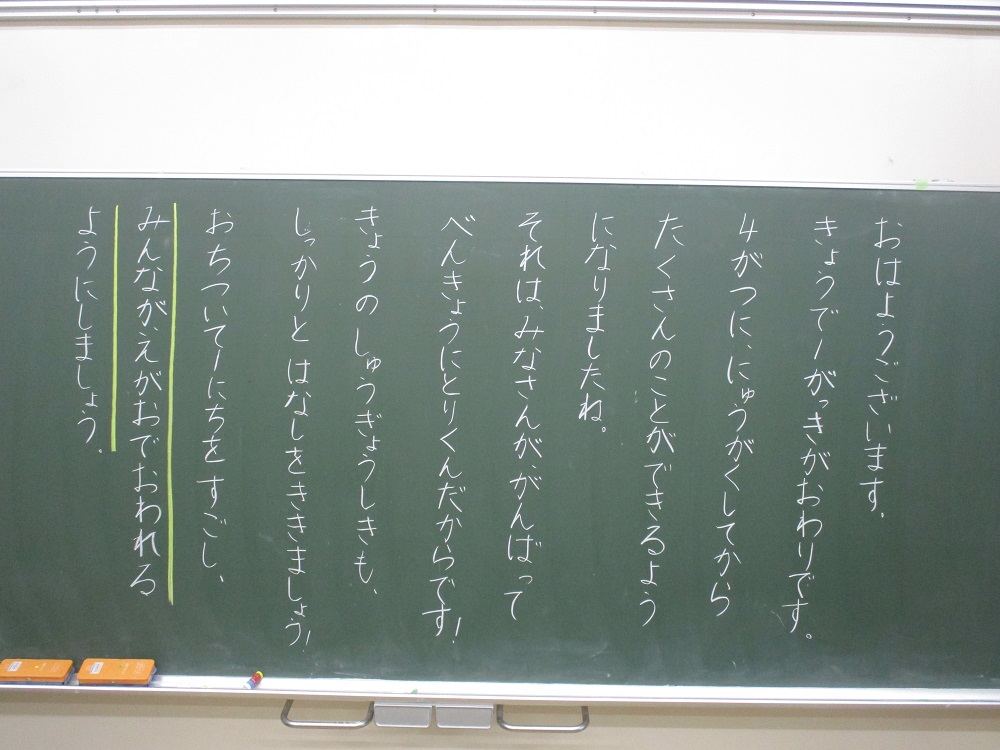 おはようございます。
きょうで1がっきがおわりです。
4がつに、にゅうがくしてから
たくさんのことができるよう
になりましたね。
それは、みなさんが、がんばって
べんきょうにとりくんだからです!
きょうのしゅうぎょうしきも、
しっかりとはなしをききましょう!
おちついて1にちをすごし、
みんなが、えがおでおわれる
ようにしましょう。